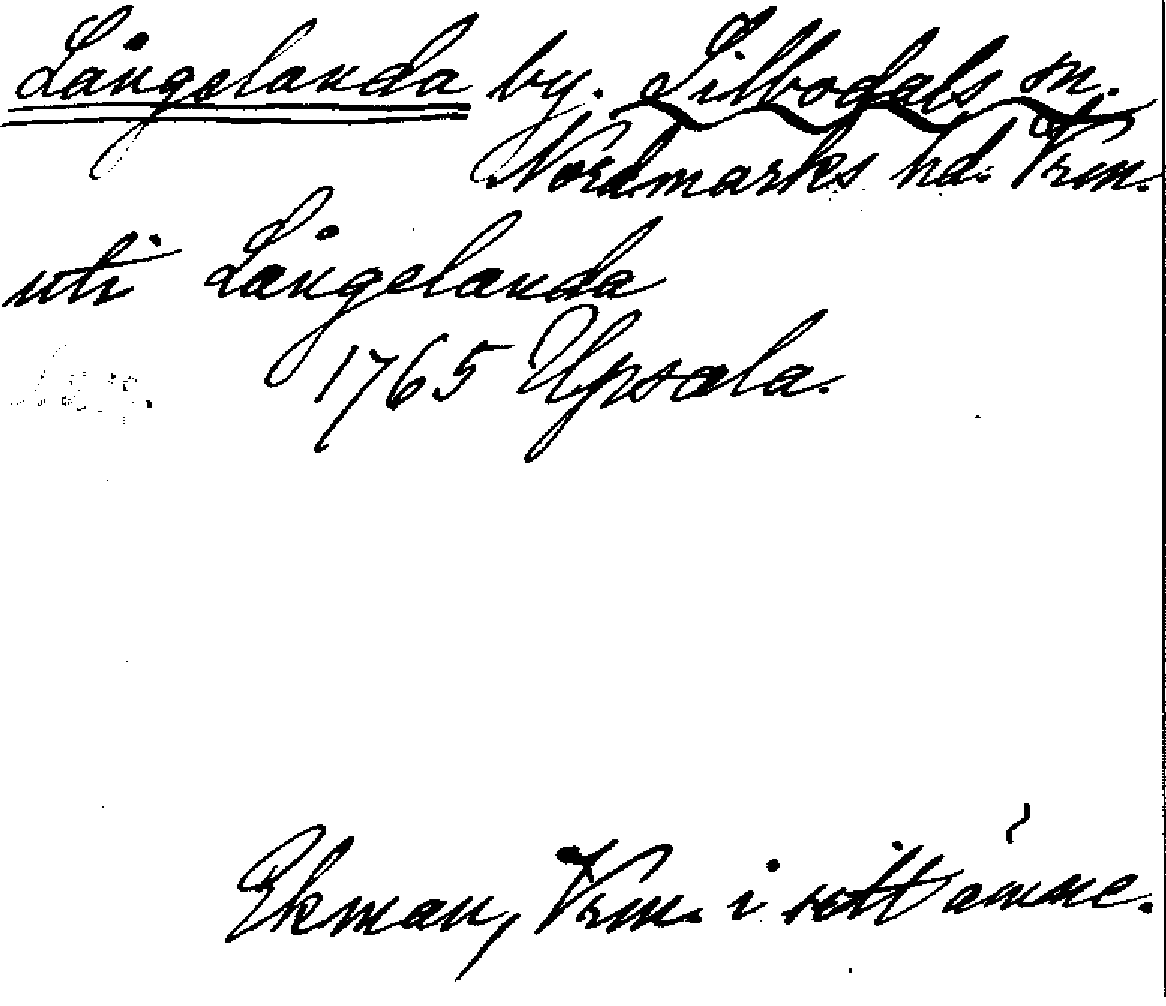 Långelanda by. Silbodals sn.
Nordmarks hd. Vrm.
uti Långelanda
1765 Upsala.
Ekman, Vrm. i sitt ämne.